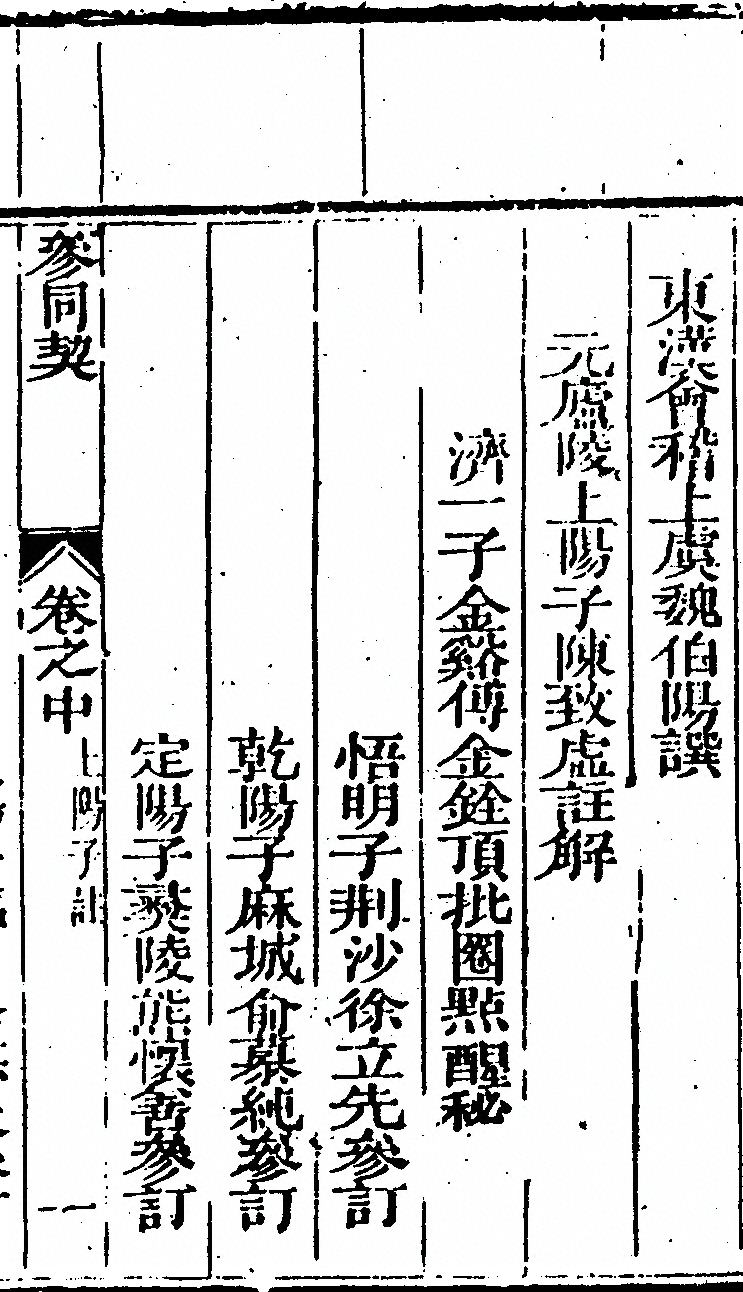 東漢會稽上虞魏伯陽譔
元廬陵上陽子陳致虛註解
濟一子金谿傅金銓頂批圈點醒秘
悟明子荆沙徐立先參訂
乾陽子麻城俞慕純參訂
定陽子夷陵熊懷善參訂
參同契
卷之中
上陽子註
一